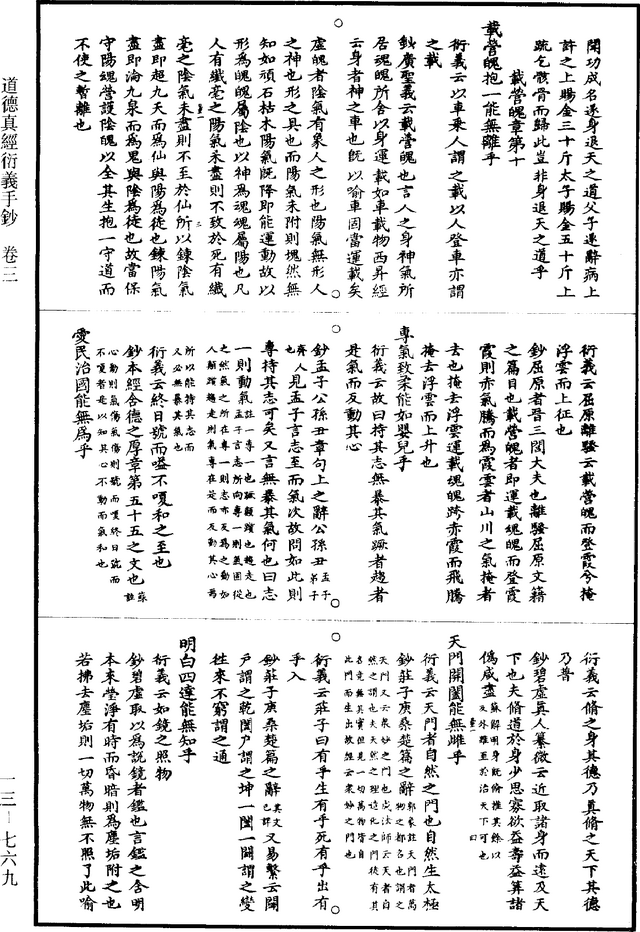 關功成名遂身退天之道父子遂辭病上
許之上賜金二十斤太子賜金五十斤上
疏乞骸骨而歸此豈非身退天之道乎
載營魄章第十
載營魄抱一能無離乎
衍義云以車乘人謂之載以人登車亦謂
之載
鈔廣聖義云載營魄也言人之身神氣所
居魂魄所舍以身運載如車載物西昇經
云身者神之車也旣以喻車固當運載矣
虛魄者陰氣有象人之形也陽氣無形人
之神也形之具也而陽氣未附則塊然無
知如頑石枯木陽氣旣降即能運動故以
形為魄魄屬陰也以神為魂魂屬陽也凡
人有纖毫之陽氣未盡則不致於死有纖
毫之陰氣未盡則不至於仙所以鍊陰氣
盡即超九天而為仙與陽為徒也鍊陽氣
盡即淪九泉而為鬼與陰為徒也故當保
守陽魂營護陰魄以全其生抱一守道而
不使之暫離也
衍義云屈原離騷云載營魄而登霞兮掩
浮雲而上征也
鈔屈原者晋三閭大夫也離騷屈原文籍
之篇目也載營魄者即運載魂魄而登霞
霞則赤氣騰而為霞雲者山川之氣掩者
去也掩去浮雲運載魂魄跨赤霞而飛騰
掩去浮雲而上升也
專氣致柔能如嬰兒乎
衍義云故曰持其志無暴其氣蹶者趨者
是氣而反動其心
鈔孟子公孫丑章句上之辭公孫丑孟子弟子
齊人也見孟子言志至而氣次故問如此則
專持其志可矣又言無暴其氣何也曰志
一則動氣
所以能持其志而
又必無暴其氣也
衍義云終日號而嗌不嗄和之至也
鈔本經含德之厚章第五十五之文也蘇註
心動則氣傷氣傷則號而嗄終日號而
不嗄者是以知其心不動而氣和也
愛民治國能無為乎
衍義云脩之身其德乃真脩之天下其德
乃普
鈔碧虛真人纂微云近取諸身而遠及天
下也夫脩道於身少思寡欲益壽益算諸
偽咸盡
天門開闔能無雌乎
衍義云天門者自然之門也自然生太極
鈔莊子庚桑楚篇之辭
衍義云莊子曰有乎生有乎死有乎出有
乎入
鈔莊子庚桑楚篇之辭其文已詳又易繫云闔
戶謂之乾闔戶謂之坤一闔一闢謂之變
徃來不窮謂之通
明白四達能無知乎
衍義云如鏡之照物
鈔碧虛取以為說鏡者鑑也言鑑之含明
本來瑩淨有時而昏暗則為塵垢附之也
若拂去塵垢則一切萬物無不照了此喻
道德真經衍義手鈔 卷三
一三－七六九